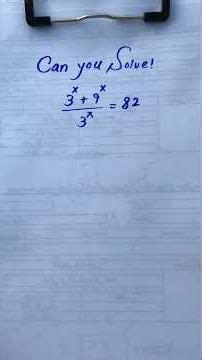 Can you Solve!
3^x + 9^x / 3^x = 82